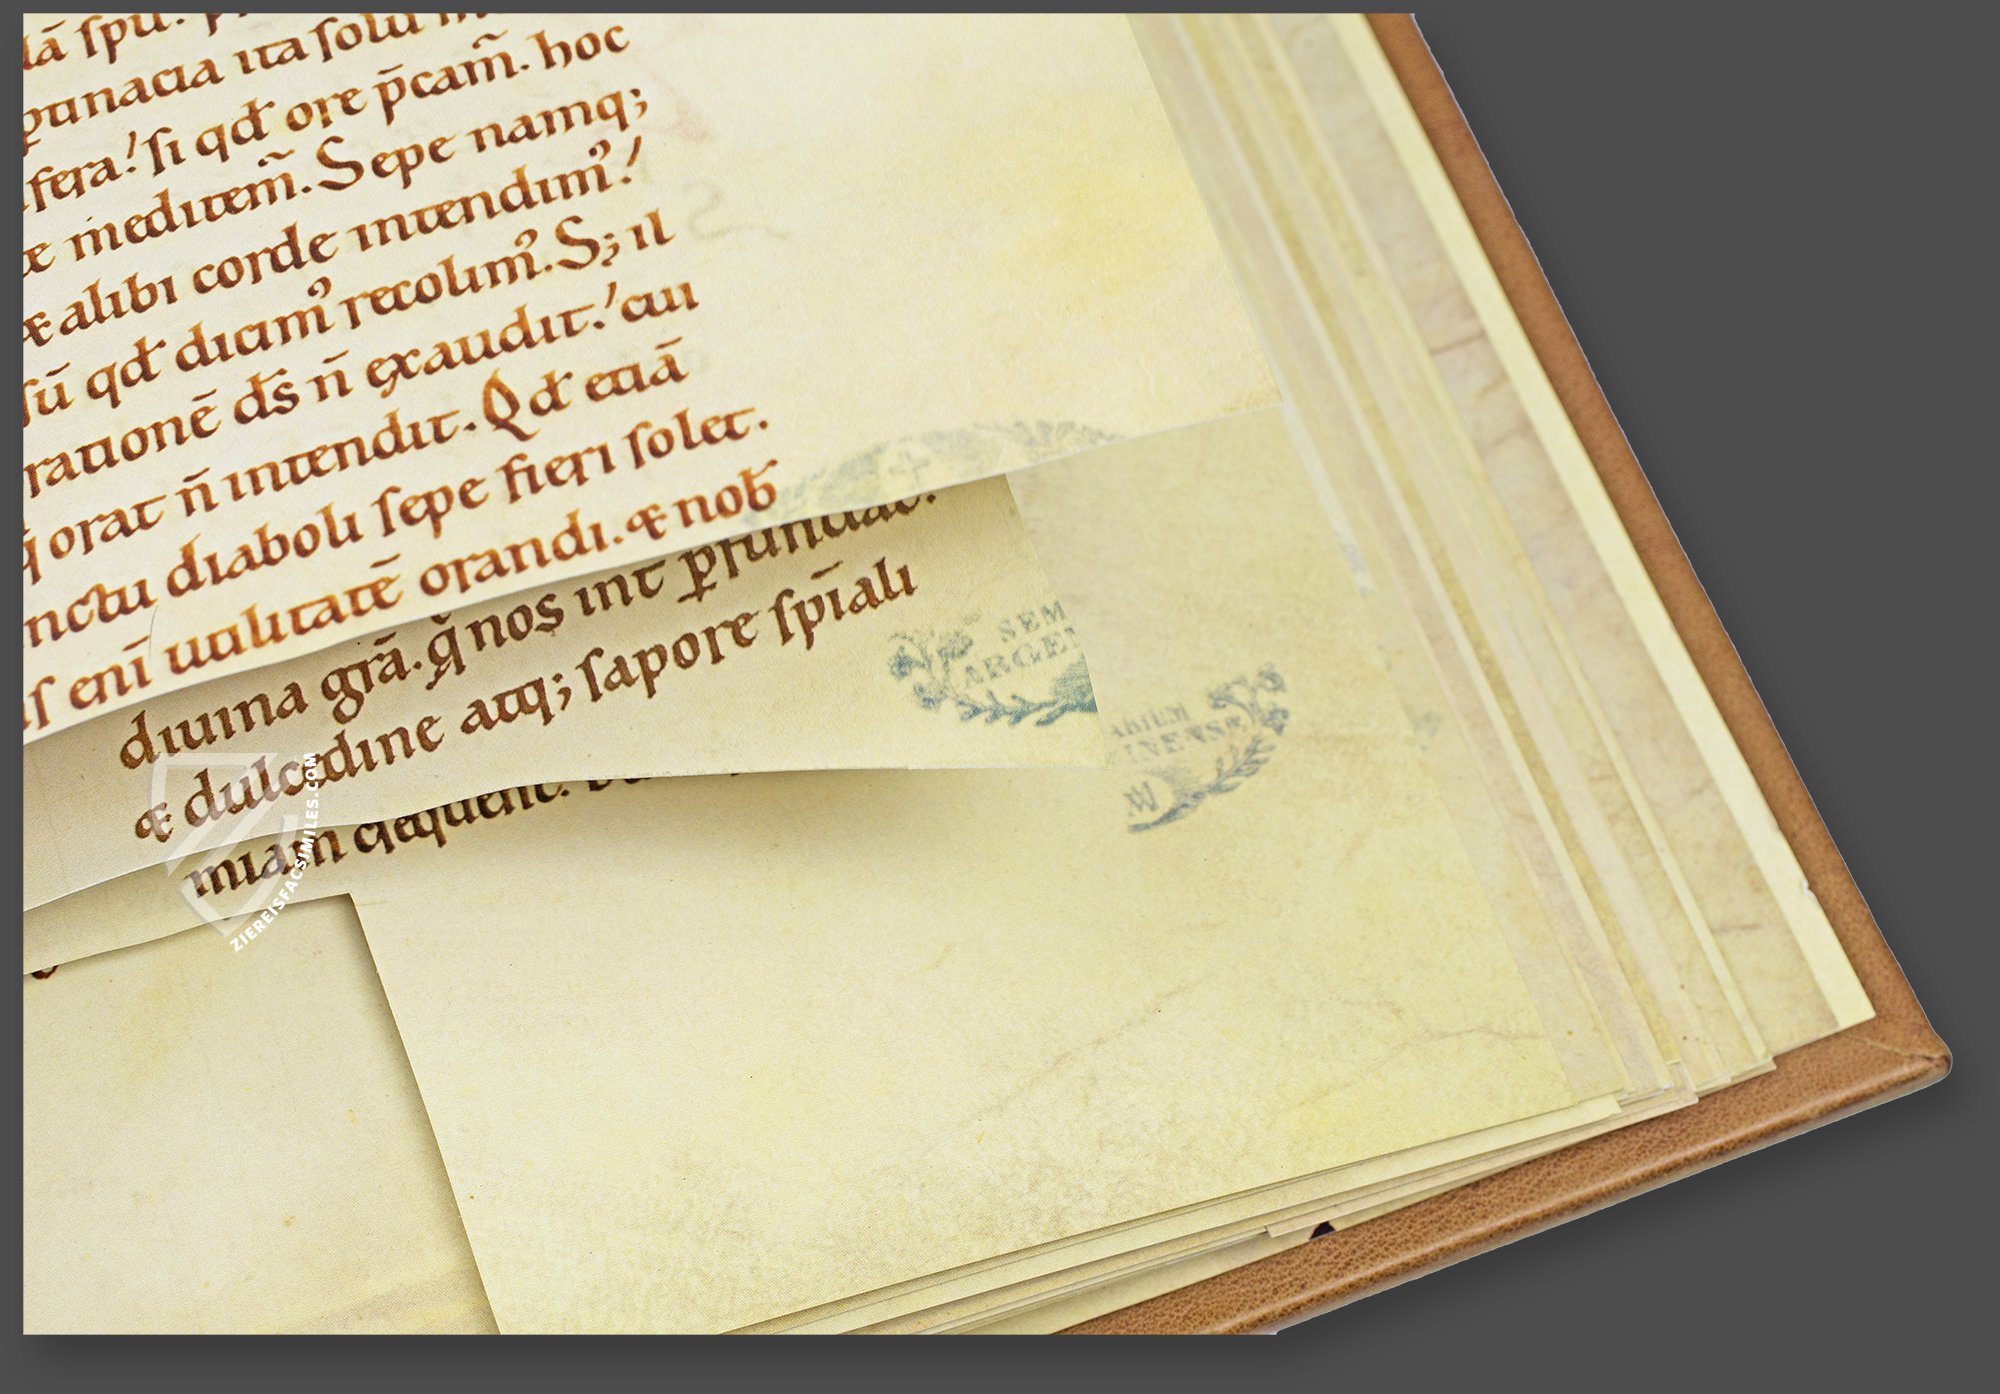 spu.
ita solu
fera! si qd ore p̄cam̄. hoc
meditem̄. Sepe namq;
& alibi corde intendimꝰ!
sū qd dicimꝰ recolimꝰ. S; il
rationē ds n̄ exaudit! cui
orat n̄ intendit. Qd etiā
nctu diaboli sepe fieri solet.
enī utilitatē orandi. & nob
diuina grā. q̄ nos int ꝓfundat.
& dulcedine atq; sapore spīali
miam
SEM
ARGEN
ARIUM
INENSE
ZIEREISFACSIMILES.COM